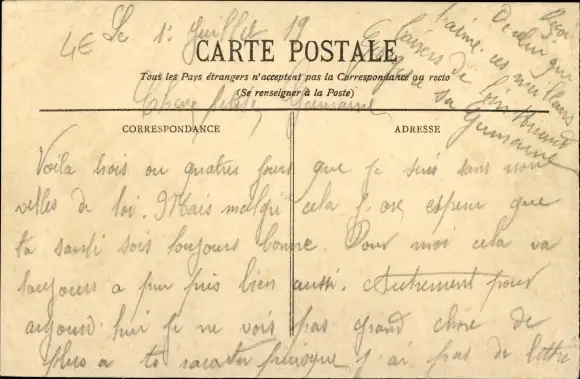 4€ Le 1er Juillet 19
CARTE POSTALE
Tous les Pays étrangers n'acceptent pas la Correspondance au recto
(Se renseigner à la Poste)
Cher petite Germaine
CORRESPONDANCE
ADRESSE
Voila trois ou quatres jours que je suis sans nou
velles de toi. Mais malgré cela j'ose espeur que
ta santé sois toujours bonne. Pour moi cela va
toujours a peu près bien aussi. Autrement pour
aujourd'hui je ne vois pas grand chose de
plus a te raconter puisque j'ai pas de lettre
qui
t'aime. ces meilleurs
baisers de loin
sa Germaine